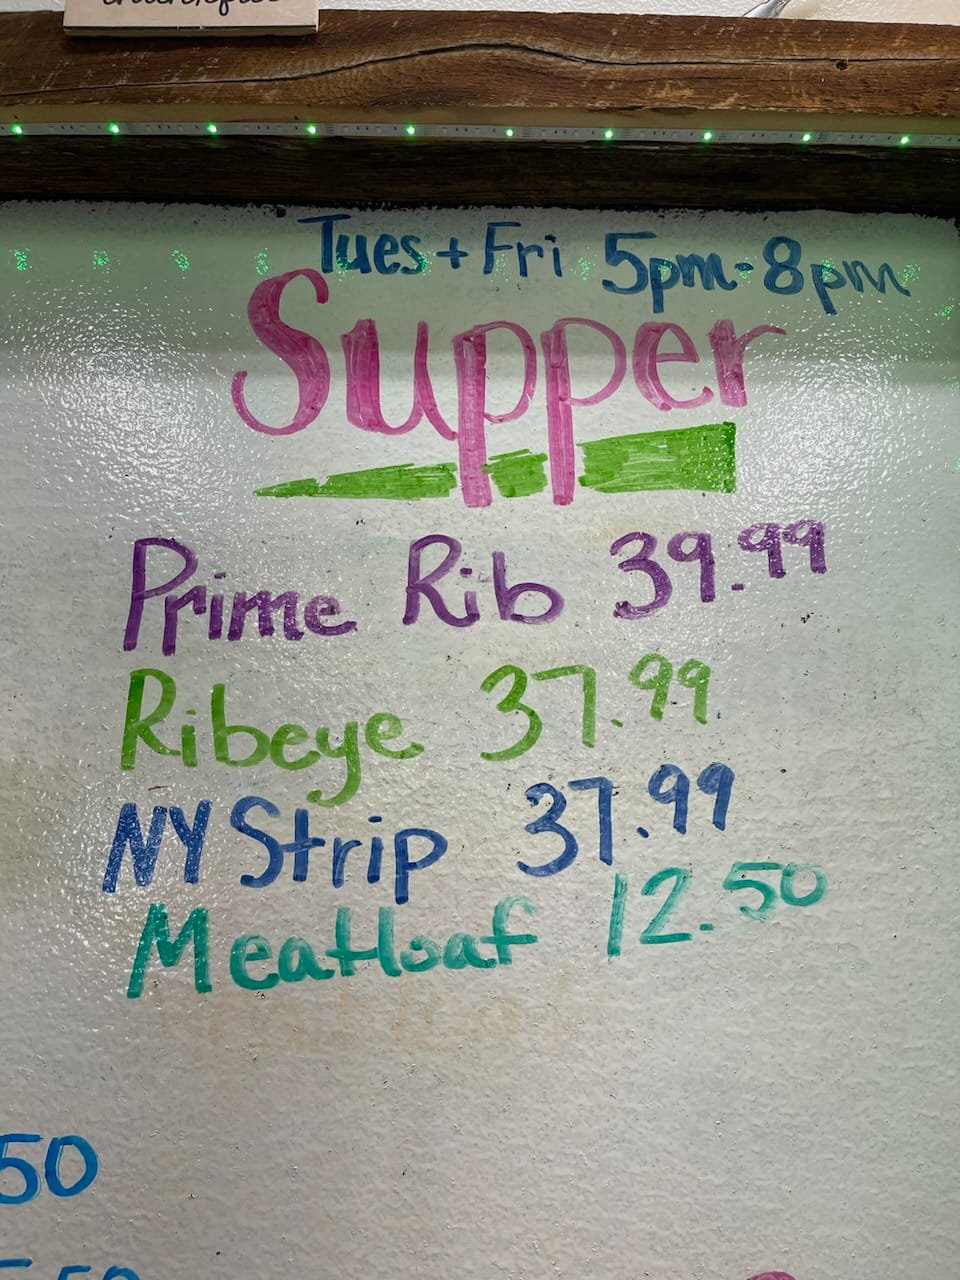 Tues + Fri 5pm-8pm
Supper
Prime Rib 39.99
Ribeye 37.99
NY Strip 37.99
Meatloaf 12.50
50
.50